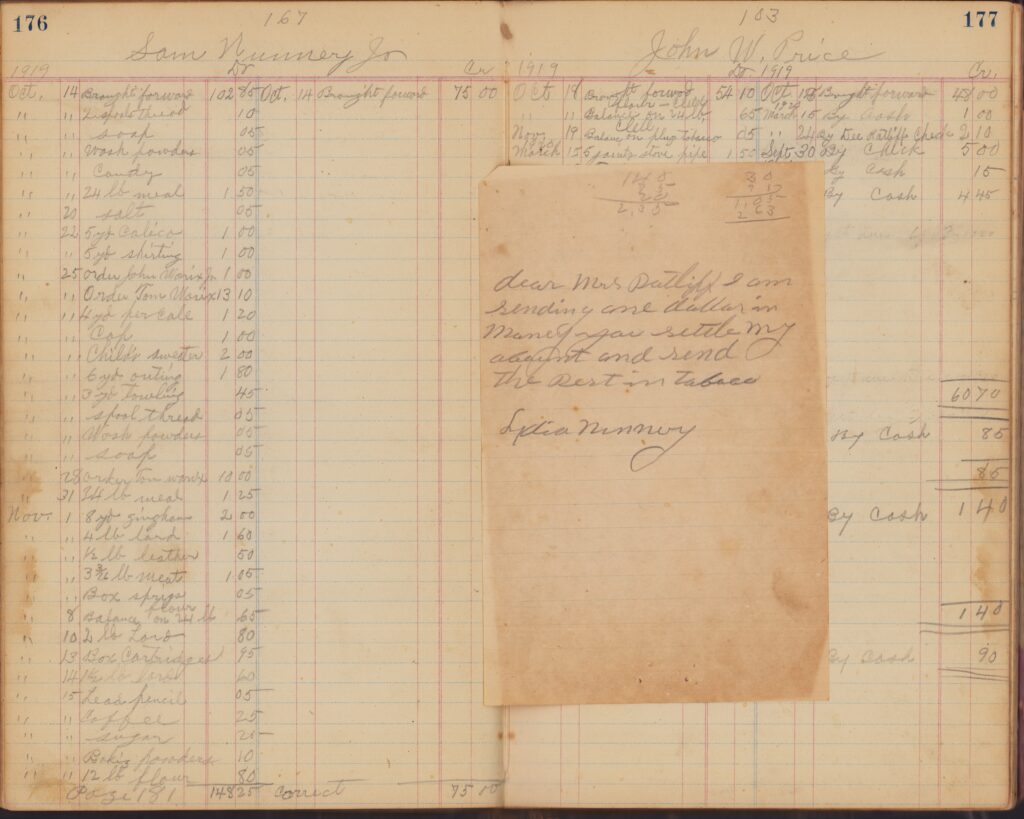 176
167
Sam Nunnery Jr
1919 Dr Cr
Oct. 14 Brought forward 102 85 Oct. 14 Brought forward 75 00
" " 2 spools thread 10
" " soap 05
" " Wash powders 05
" " Candy 05
" " 24 lb meal 1 50
" 20 salt 05
" 22 5 yd Calico 1 00
" " 5 yd shirting 1 00
" 25 order John 1 00
" " Order Tom 13 10
" " 4 yd per cale 1 20
" " Cap 1 00
" " Child's sweter 2 00
" " 6 yd outing 1 80
" " 3 yd towling 45
" " spool thread 05
" " Wash powders 05
" " soap 05
" 28 order Tom 10 00
" 31 24 lb meal 1 25
Nov. 1 8 yd gingham 2 00
" " 4 lb lard 1 60
" " ½ lb leather 50
" " lb meat 1 05
" " Box sprigs 05
" 8 Balance on 24 lb flour 65
" 10 2 lb Lard 80
" 13 Box Cartridges 95
" 14 1½ lb lard 60
" 15 Lead pencil 05
" " Coffee 25
" " sugar 25
" " Baking powders 10
" " 12 lb flour 80
Page 181 148 25 Correct 75 00
177
103
John W. Price
1919 Dr 1919 Cr.
Oct 18 Brought forward 54 10 Oct Brought forward 00
" " Balance on 24 lb flour 65 March 15 By Cash 1 00
Nov. 19 Balance on plug tobacco 05 " 24 By Dee Ratliff Check 2 10
March 15 5 joints stove pipe 1 50 Sept 30 By Check 5 00
By Cash 15
By Cash 4 45
60 70
By Cash 85
85
By Cash 1 40
1 40
By Cash 90
140
2,35
30
1,05
263
dear Mrs Ratliff I am
sending one dollar in
Money you settle my
acount and send
the Rest in tabaco
Lydia Nunnery